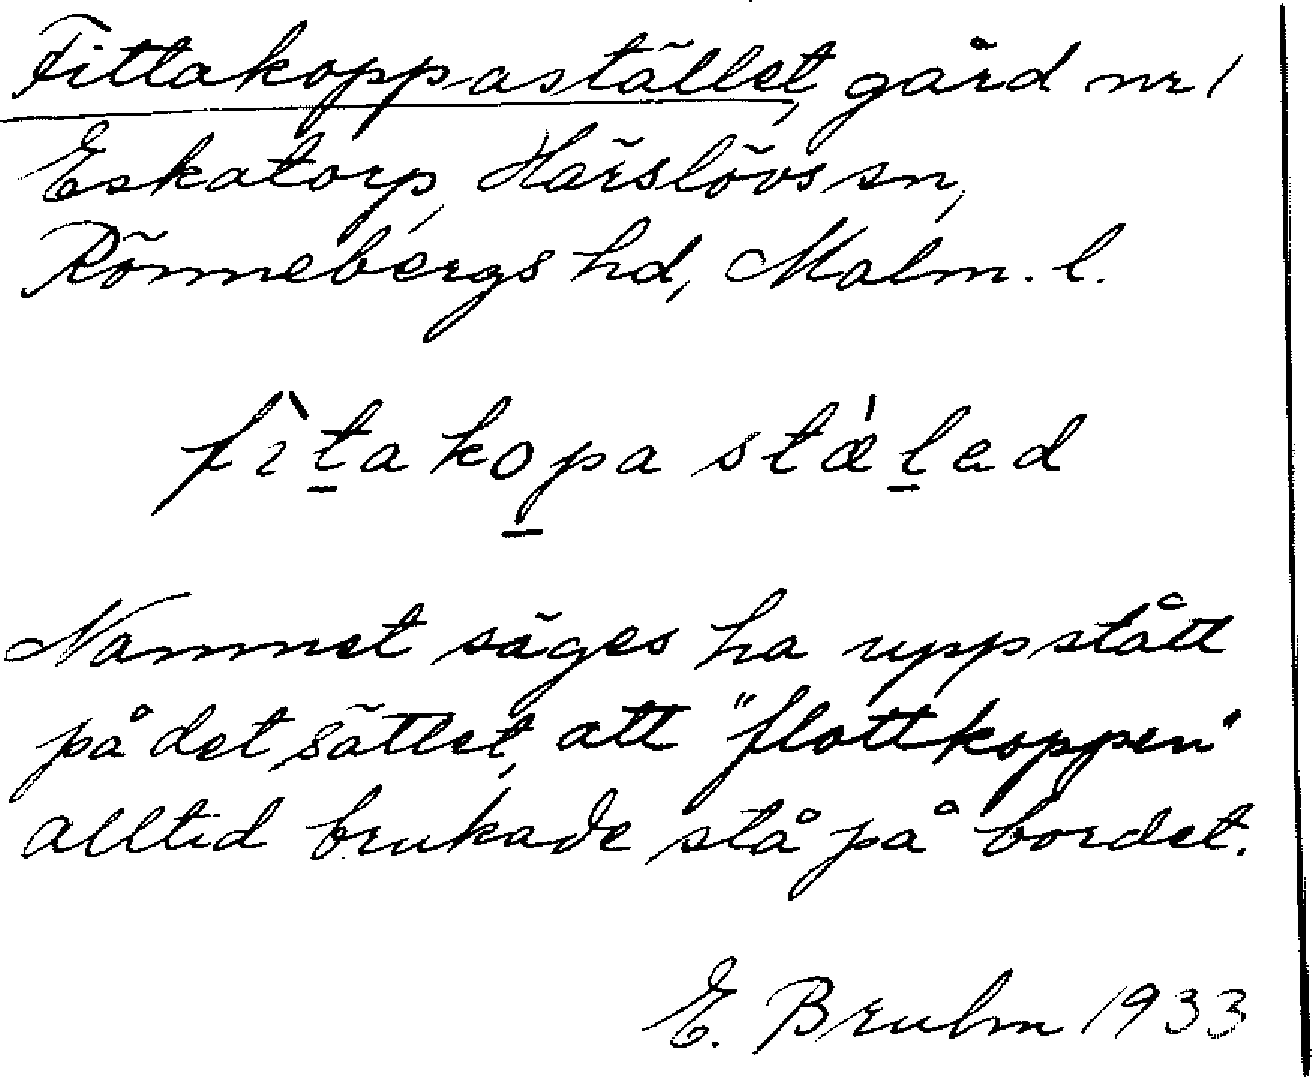 Fittakoppastället, gård nr 1
Eskatorp, Härslövs sn,
Rönnebergs hd, Malm. l.
fìtakopa stǽlad
Namnet säges ha uppstått
på det sättet, att "flottkoppen"
alltid brukade stå på bordet.
E. Bruhn 1933